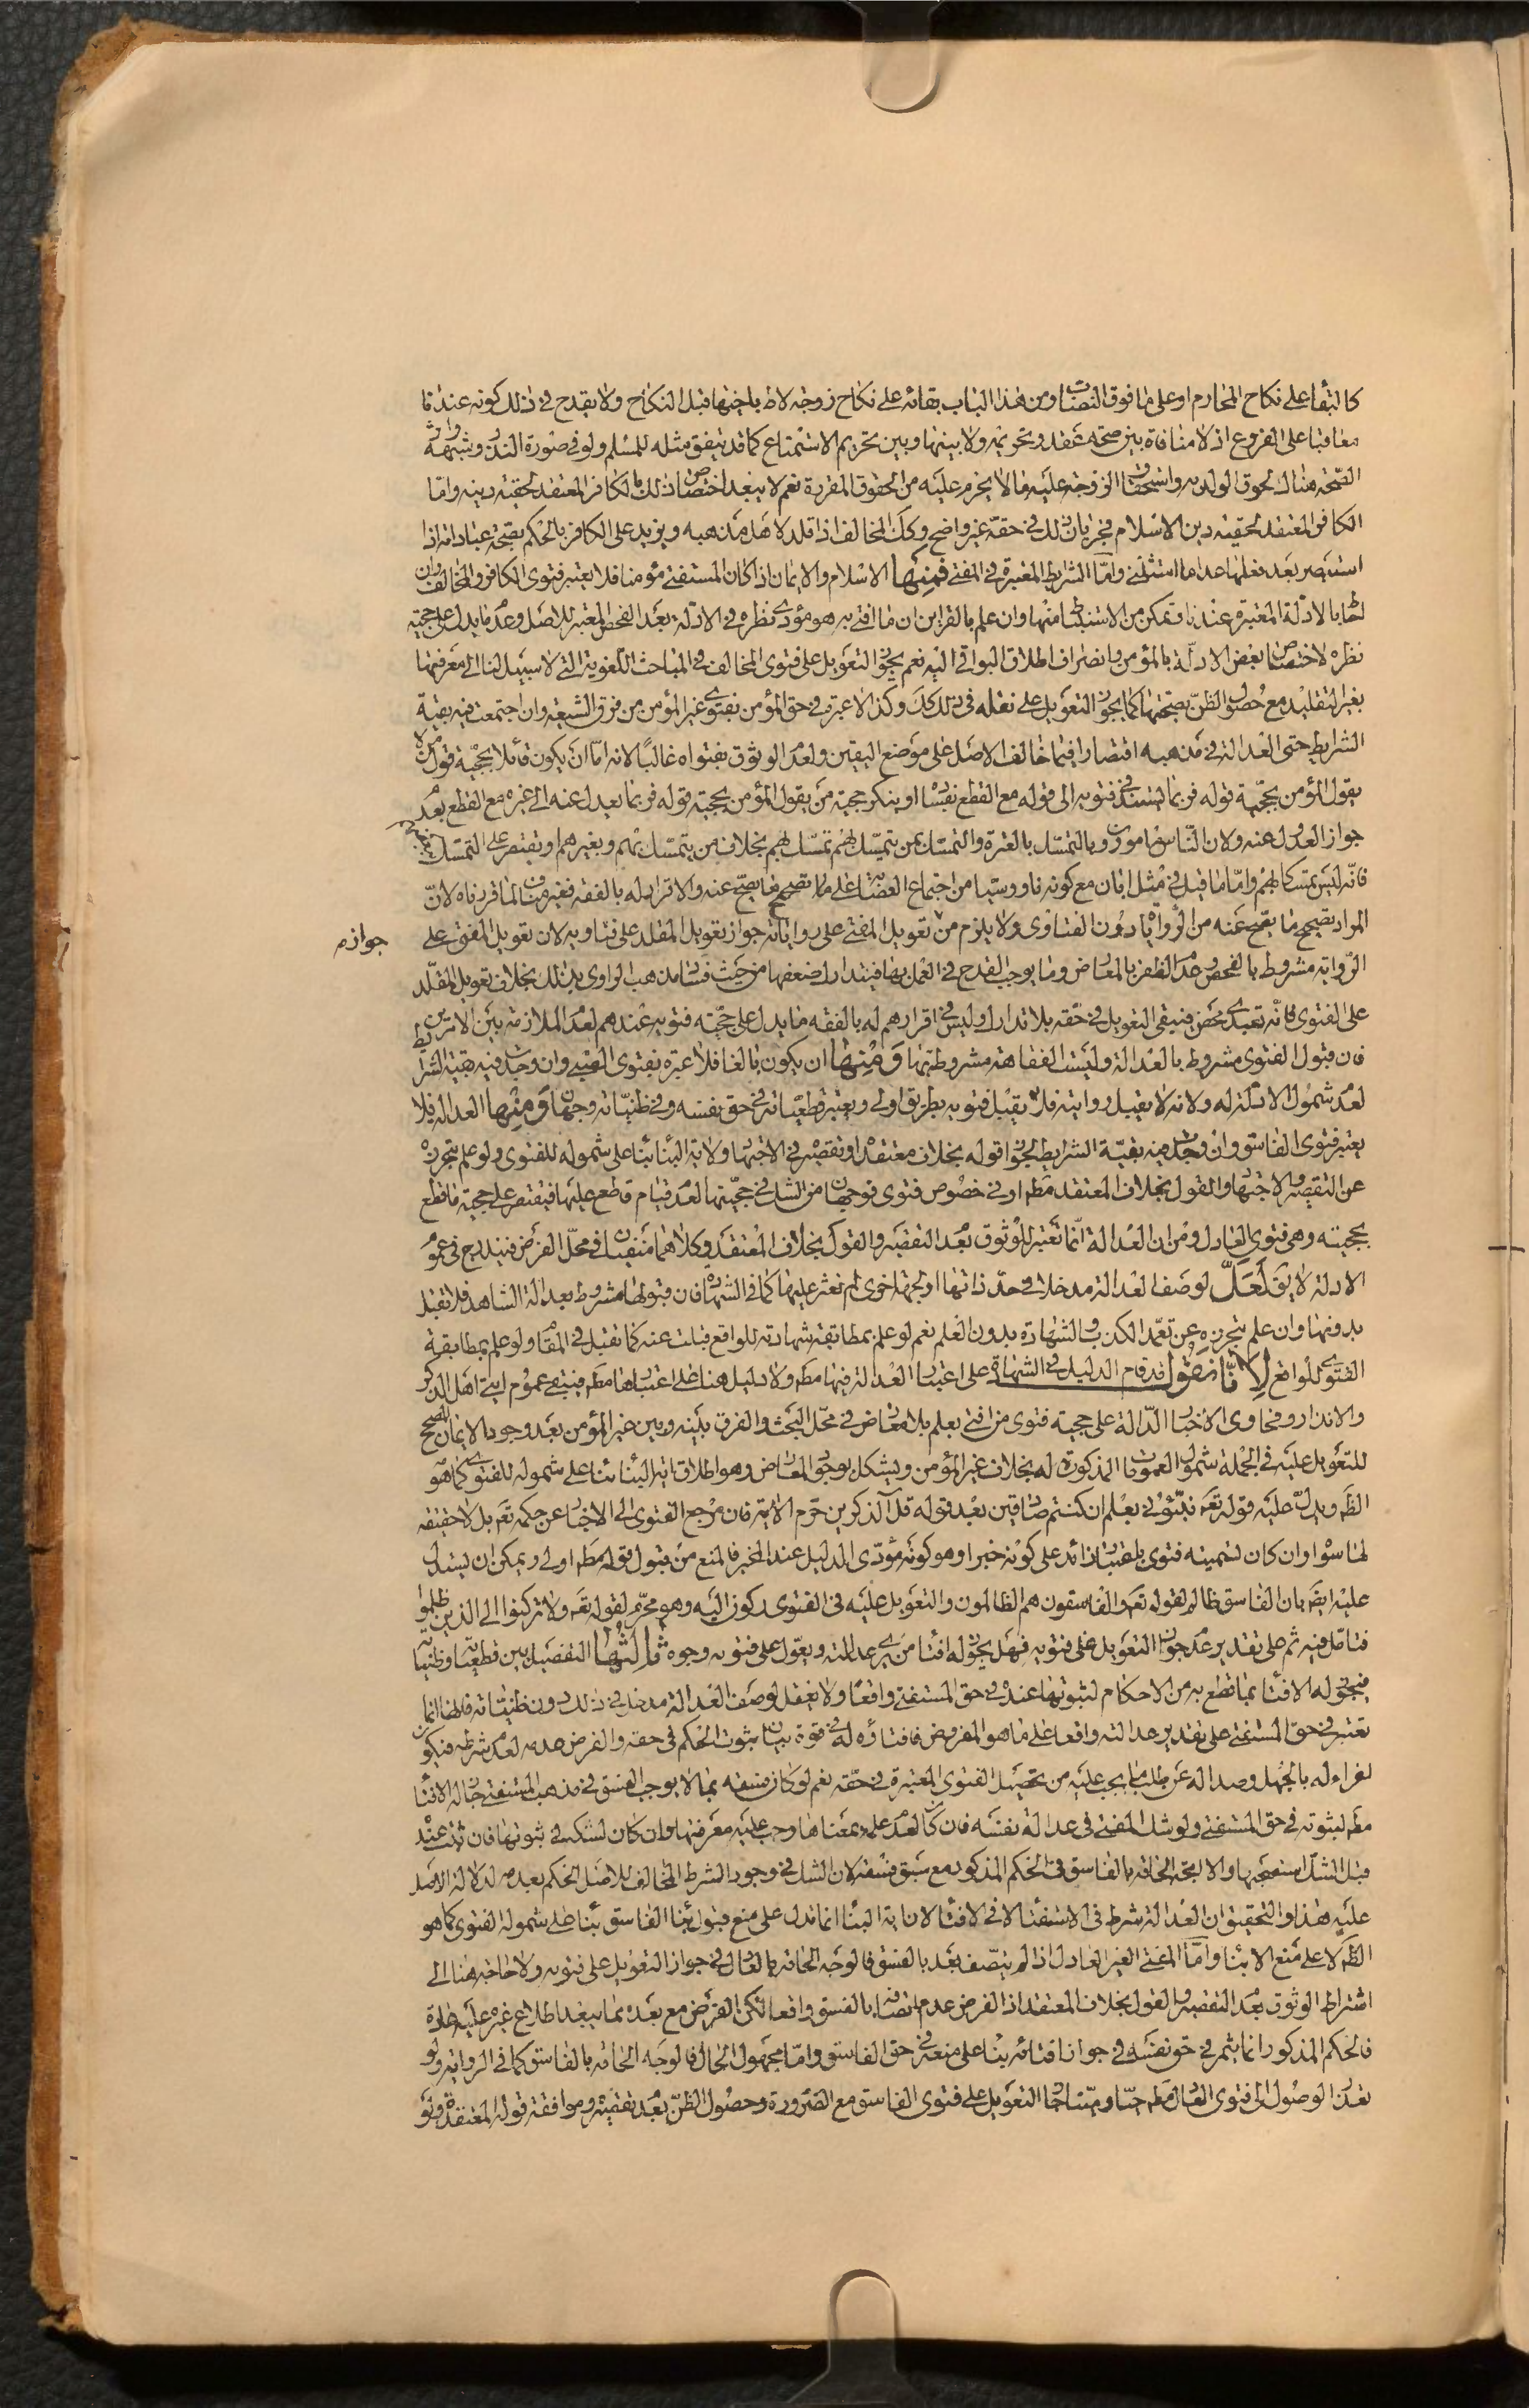 كالبقاء على نكاح المحارم او على ما فوق النصاب ومن هذا الباب بقائه على نكاح زوجة لاط باخيها قبل النكاح ولا يقدح في ذلك كونه عندنا
معاقبا على الفروع اذ لا منافاة بين صحة عقد وتحريمه ولا بينها وبين تحريم الاستمتاع كما قد يتفق مثله للمسلم ولو في صورة النذر وشبهه واثر
الصحة هناك لحوق الولد به واستحقاق الزوجة عليه ما لا يحرم عليه من الحقوق المقررة نعم لا يبعد اختصاص ذلك بالكافر المعتقد لحقية دينه وامّا
الكافر المعتقد لحقية دين الاسلام فجريان ذلك في حقه غير واضح وكك المخالف اذا قلد لاهل مذهبه ويزيد على الكافر بالحكم بصحة عباداته اذا
استبصر بعد فعلها عدا ما استثنى وامّا الشرايط المعتبرة في المفتى فمنها الاسلام والايمان اذا كان المستفتى مؤمنا فلا يعتبر فتوى الكافر والمخالف وان
افتيا بالادلّة المعتبرة عندنا وتمكن من الاستنباط منها وان علم بالقراين ان ما افتى به هو مؤدى نظره في الادلة بعد الفحص المعتبر للاصل وعدم ما يدل على حجية
نظره لاختصاص بعض الادلّة بالمؤمن وانصراف اطلاق البواقى اليه نعم يجوز التعويل على فتوى المخالف في المباحث اللغوية التى لا سبيل لنا الى معرفتها
بغير التقليد مع حصول الظنّ بصحتها كما يجوز التعويل على نقله في ذلك كك وكذا لا عبرة في حق المؤمن بفتوى غير المؤمن من فرق الشيعة وان اجتمعت فيه بقية
الشرايط حتى العدالة في مذهبه اقتصارا فيما خالف الاصل على موضع اليقين ولعدم الوثوق بفتواه غالبًا لانه امّا ان يكون قائلا بحجية قول من لا
يقول المؤمن بحجّية قوله فربما يستند في فتويه الى قوله مع القطع بفسا او ينكر حجية من يقول المؤمن بحجية قوله فربما يعدل عنه الى غيره مع القطع بعدم
جواز العدول عنه ولان النّاس مامورون بالتمسّك بالعترة والتمسّك بمن يتمسّك بهم تمسّك بهم بخلاف من يتمسّك بهم وبغيرهم او يقتصر على التمسّك بغيرهم
فانّه ليس تمسكا بهم وامّا ما قيل في مثل ابان مع كونه ناووسيا من اجتماع العصابة على تصحيح ما يصحّ عنه والاقرار له بالفقه فغير مناف لما قررناه لانّ
المراد تصحيح ما يصح عنه من الروايات دون الفتاوى ولا يلزم من تعويل المفتى على رواياته جواز تعويل المقلد على فتاويه لان تعويل المفتى على
جوازه
الرّواية مشروط بالفحص وعدم الظفر بالمعارض وما يوجب القدح في العمل بها فيتدارك ضعفها من حيث فساد مذهب الراوى بذلك بخلاف تعويل المقلّد
على الفتوى فانّه تعبدى محض فيبقى التعويل في حقه بلا تدارك وليس في اقرارهم له بالفقه ما يدل على حجّية فتويه عندهم لعدم الملازمة بين الامرين
فان قبول الفتوى مشروط بالعدالة وليست الفقاهة مشروطة بها ومنها ان يكون بالغا فلا عبرة بفتوى الصبى وان وجد فيه بقية الشرايط
لعدم شمول الادلّة له ولانه لا يقبل روايته فلان لا يقبل فتويه بطريق اولى ويعتبر قطعيّاته في حق نفسه وفي ظنيّاته وجهان ومنها العدالة فلا
يعتبر فتوى الفاسق وان وجد فيه بقيّة الشرايط لجواز قوله بخلاف معتقده او تقصيره في الاجتهاد ولاية النبأ بناء على شموله للفتوى ولو علم بتحرزه
عن التقصير في الاجتهاد والقول بخلاف المعتقد مطم او في خصوص فتوى فوجهان من الشك في حجّيتها لعدم قيام قاطع عليها فيقتصر على حجية ما قطع
بحجيته وهى فتوى العادل ومن ان العدالة انّما تعتبر للوثوق بعدم التقصير والقول بخلاف المعتقد وكلاهما منفيان في محلّ الفرض فيندرج في عموم
الادلة لا يق لعلّ لوصف العدالة مدخلا في حدّ ذاتها او لجهة اخرى لم نعثر عليها كما في الشهادة فان قبولها مشروط بعدالة الشاهد فلا تقبل
بدونها وان علم بتحرزه عن تعمّد الكذب في الشهادة بدون العلم نعم لو علم بمطابقة شهادته للواقع قبلت عنه كما تقبل في المقام ولو علم بمطابقة
الفتوى للواقع لانّا نقول قد قام الدليل في الشهادة على اعتبار العدالة فيها مطم ولا دليل هنا على اعتبارها مطم فيبقى عموم اية اهل الذكر
والانذار وفحاوى الاخبار الدّالة على حجية فتوى من افتى بعلم بلا معارض في محّل البحث والفرق بينه وبين غير المؤمن بعد وجود الايمان المصحح
للتعويل عليه في الجملة شمول العمومات المذكورة له بخلاف غير المؤمن ويشكل بوجود المعارض وهو اطلاق اية النبأ بناء على شموله للفتوى كما هو
الظ ويدلّ عليه قوله تعم نبّئونى بعلم ان كنتم صادقين بعد قوله قل آلذكرين حرّم الاية فان مرجع الفتوى الى الاخبار عن حكمه تعم بل لا حقيقة
لها سواه وان كان تسميته فتوى باعتبار زائد على كونه خبرا وهو كونه مؤدّى الدليل عند المخبر فالمنع من قبول قوله مطم اولى ويمكن ان يستدل
عليه ايضا بان الفاسق ظالم لقوله تعم والفاسقون هم الظالمون والتعويل عليه في الفتوى ركون اليه وهو محرّم لقوله تعم ولا تركنوا الى الذين ظلموا
فتامّل فيه ثم على تقدير عدم جواز التعويل على فتويه فهل يجوز له افتاء من يرى عدالته ويعوّل على فتويه وجوه ثالثها التفصيل بين قطعياته وظنياته
فيجوز له الافتاء بما قطع به من الاحكام لثبوتها عنده في حق المستفتى واقعا ولا يعقل لوصف العدالة مدخل في ذلك دون ظنياته فانها انما
تعتبر في حقّ المستفتى على تقدير عدالته واقعا على ما هو المفروض فافتاؤه له في قوة بيان ثبوت الحكم في حقه والفرض عدمه لعدم شرطه فيكون
اغراء له بالجهل وصدا له عن طلب ما يجب عليه من تحصيل الفتوى المعتبرة في حقّه نعم لو كان فسقه بما لا يوجب الفسق في مذهب المستفتى جاز له الافتاء
مطم لثبوته في حق المستفتى ولو شك المفتى في عدالة نفسه فان كان لعدم علمه بمعناها وجب عليه معرفتها وان كان لشكه في ثبوتها فان ثبت عنده
قبل الشكّ استصحبها والا اتجه الحاقه بالفاسق في الحكم المذكور مع سبق فسقه لان الشك في وجود الشرط المخالف للاصل الحكم بعدمه لدلالة الاصل
عليه هذا والتحقيق ان العدالة شرط في الاستفتاء لا في الافتاء لان اية النبأ انما تدل على منع قبول نبأ الفاسق بناء على شموله الفتوى كما هو
الظ لا على منع الانباء وامّا المفتى الغير العادل اذا لم يتّصف بعد بالفسق فالوجه الحاقه بالعادل في جواز التعويل على فتويه ولا حاجة هنا الى
اشتراط الوثوق بعدم التقصير والقول بخلاف المعتقد اذ الفرض عدم اتصافه بالفسق واقعا لكن الفرض مع بعده مما يبعد اطلاع غيره عليه عادة
فالحكم المذكور انما يثمر في حق نفسه في جواز افتائه بناء على منعه في حق الفاسق وامّا مجهول الحال فالوجه الحاقه بالفاسق كما في الرواية ولو
تعذر الوصول الى فتوى العادل مطم حيّا وميّتا جاز التعويل على فتوى الفاسق مع الضرورة وحصول الظنّ بعدم تقصيره وموافقة قوله لمعتقده ولو